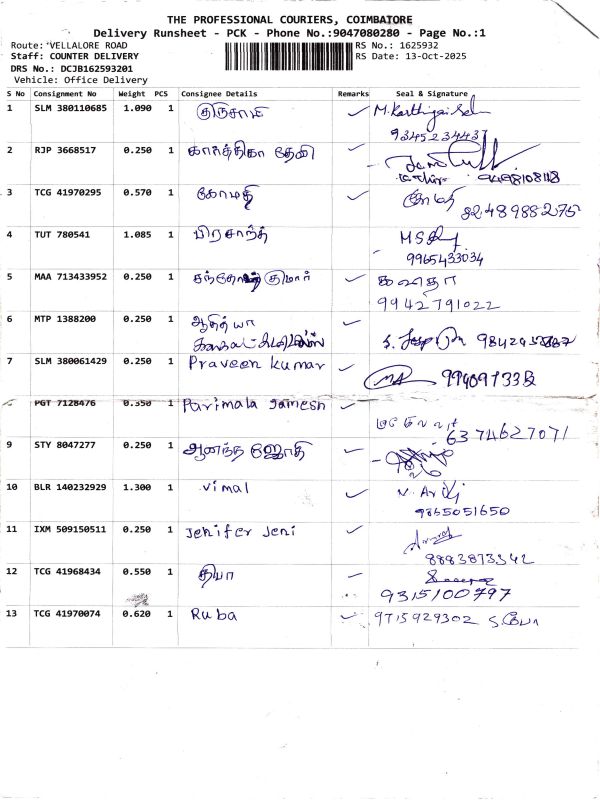 THE PROFESSIONAL COURIERS, COIMBATORE
Delivery Runsheet - PCK - Phone No.:9047080280 - Page No.:1
Route: VELLALORE ROAD RS No.: 1625932
Staff: COUNTER DELIVERY RS Date: 13-Oct-2025
DRS No.: DCJB162593201
Vehicle: Office Delivery
S No Consignment No Weight PCS Consignee Details Remarks Seal & Signature
1 SLM 380110685 1.090 1 திருசாமி ✓ M.Karthigai Sel
9345234437
2 RJP 3668517 0.250 1 கார்த்திகா தேவி ✓
9498108118
3 TCG 41970295 0.570 1 கோமதி ✓ கோமதி
8248988275
4 TUT 780541 1.085 1 பிரசாந்த்
9965433034
5 MAA 713433952 0.250 1 சந்தோஷ் குமார் ✓ கவிதா
9942791022
6 MTP 1388200 0.250 1 ஆதித்யா ✓
7 SLM 380061429 0.250 1 Praveen kumar ✓
PGT 7128476 0.350 1 Parimala Jamesh ✓
6374627071
9 STY 8047277 0.250 1 ஆனந்த ஜோதி ✓
10 BLR 140232929 1.300 1 Vimal ✓
9865051650
11 IXM 509150511 0.250 1 Jenifer Jeni ✓
8883873342
12 TCG 41968434 0.550 1 தியா
9315100797
13 TCG 41970074 0.620 1 Ruba ✓ 9715929302